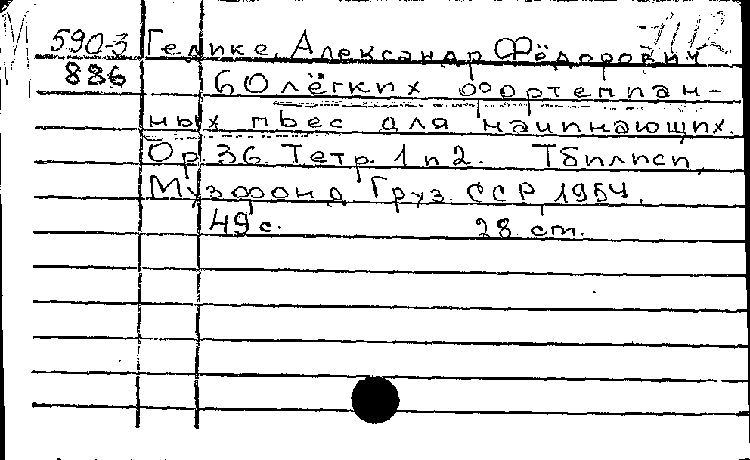 590-3 Гедике, Александр Фёдорович
886 60 лёгких фортепиан-
ных пьес для начинающих.
Ор. 36. Тетр. 1 и 2. Тбилиси,
Музфонд Груз. ССР, 1954.
49 с. 28 cm.